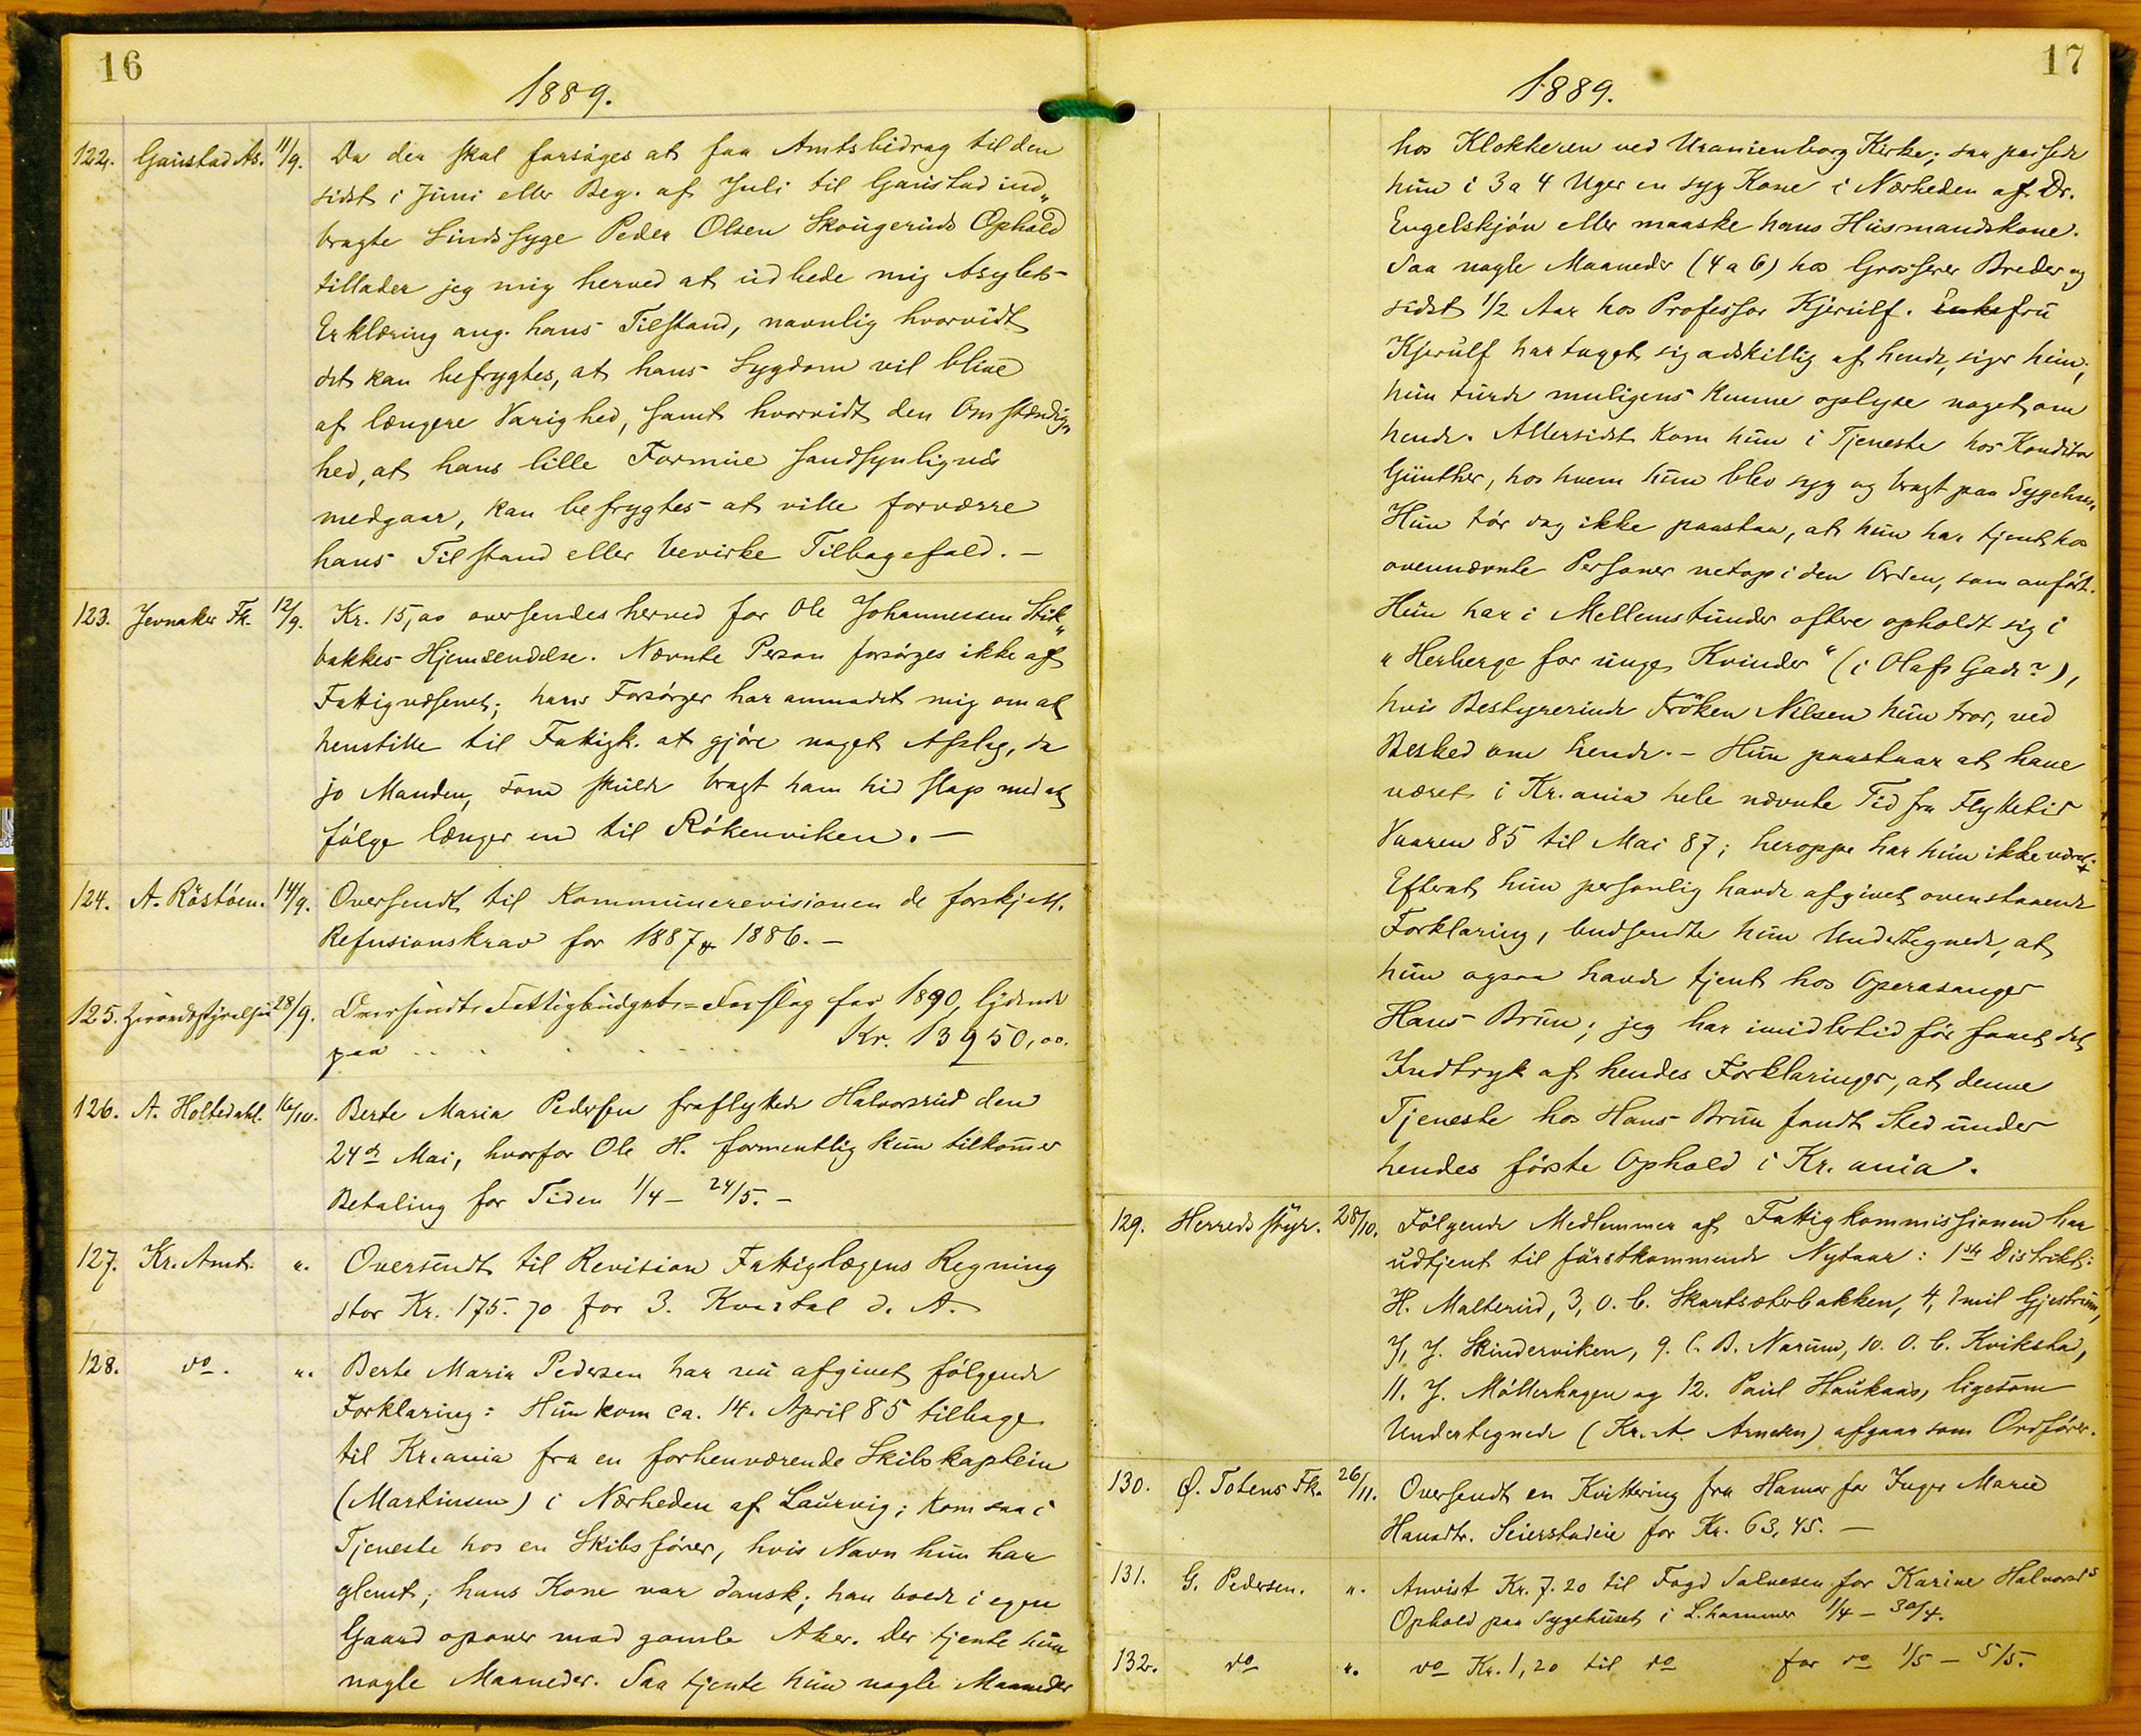 16
1889.
122. Gaustad As. 11/9. Da der skal forsøges at faa Amtsbidrag til den
sidst i Juni eller Beg. af Juli til Gaustad ind„
bragte Sindssyge Peder Olsen Skougeruds Ophold
tillader jeg mig herved at udbede mig Asylets
Erklæring ang. hans Tilstand, navnlig hvorvidt
det kan befrygtes, at hans Sygdom vil blive
af længere Varighed, samt hvorvidt den Omstændig„
hed, at hans lille Formue sandsynligvis
medgaar, kan befrygtes at ville forværre
hans Tilstand eller bevirke Tilbagefald. –
123. Jevnaker Fk. 12/9. Kr. 15,00 oversendes herved for Ole Johannessen Stik„
bakkes Hjemsendelse. Nævnte Person forsørges ikke af
Fattigvæsenet; hans Forsørger har anmodet mig om at
henstille til Fattigk. at gjøre noget Afslag, da
jo Manden, som skulde bragt ham hid slap med at
følge længer end til Røkenviken. –
124. A. Röstöen. 14/9. Oversendt til Kommunerevisionen de forskjell.
Refusionskrav for 1887 & 1886. –
125. Herredsstyrelsen 28/9. Oversendt Fattigbudget-Forslag for 1890, lydende
paa . . . . . . . Kr. 13950,00.
126. A. Holtedahl. 16/10. Berte Maria Pedersen fraflyttede Halvorsrud den
24de Mai, hvorfor Ole H. formentlig kun tilkommer
Betaling for Tiden 1/4 – 24/5. –
127. Kr. Amt. ". Oversendt til Revision Fattiglægens Regning
stor Kr. 175.70 for 3. Kvartal d. A.
128. do. ". Berte Maria Pedersen har nu afgivet følgende
Forklaring: Hun kom ca. 14. April 85 tilbage
til Kr.ania fra en forhenværende Skibskaptein
(Martinsen) i Nærheden af Laurvig; kom saa i
Tjeneste hos en Skibsfører, hvis Navn hun har
glemt; hans Kone var dansk; han boede i egen
Gaard opover mod gamle Aker. Der tjente hun
nogle Maaneder. Saa tjente hun nogle Maaneder
17
1889.
hos Klokkeren ved Uranienborg Kirke; saa passede
hun i 3 a 4 Uger en syg Kone i Nærheden af Dr.
Engelskjøn eller maaske hans Husmandskone.
Saa nogle Maaneder (4 a 6) hos Grosserer Breder og
sidst 1/2 Aar hos Professor Kjerulf. Enkefru
Kjerulf har taget sig adskillig af hende, siger hun;
hun turde muligens kunne oplyse noget om
hende. Allersidst kom hun i Tjeneste hos Konditor
Günther, hos hvem hun blev syg og bragt paa Sygehus„
Hun tør dog ikke paastaa, at hun har tjent hos
ovennævnte Personer netop i den Orden, som anført.
Hun har i Mellemstunder oftere opholdt sig i
"Herberge for unge Kvinder" (i Olafs Gade?),
hvis Bestyrerinde Frøken Nilsen hun tror, ved
Besked om hende. – Hun paastaar at have
været i Kr.ania hele nævnte Tid fra Flyttetid
Vaaren 85 til Mai 87; heroppe har hun ikke været.
Efterat hun personlig havde afgivet ovenstaaende
Forklaring, budsendte hun Undertegnede, at
hun ogsaa havde tjent hos Operasanger
Hans Brun; jeg har imidlertid før faaet det
Indtryk af hendes Forklaringer, at denne
Tjeneste hos Hans Brun fandt Sted under
hendes første Ophold i Kr.ania.
129. Herredsstyr. 28/10. Følgende Medlemmer af Fattigkommissionen har
udtjent til førstkommende Nytaar: 1ste Distrikt:
H. Malterud, 3, O. C. Skartsæterbakken, 4, Emil Gjestrum,
7, J. Skinderviken, 9. C. B. Narum, 10. O. C. Kvikstad,
11. J. Møllerhagen og 12. Paul Haukaas, ligesom
Undertegnede (Kr. A. Arnesen) afgaar som Ordfører.
130. Ø. Totens Fk. 26/11. Oversendt en Kvittering fra Hamar for Inger Marie
Hansdtr. Seierstadeie for Kr. 63,45. –
131. G. Pedersen. ". Anvist Kr. 7.20 til Fogd Salvesen for Karine Halvorsds
Ophold paa Sygehuset i L.hammer 1/4 – 30/4.
132. do ". do Kr. 1,20 til do for do 1/5 – 5/5.